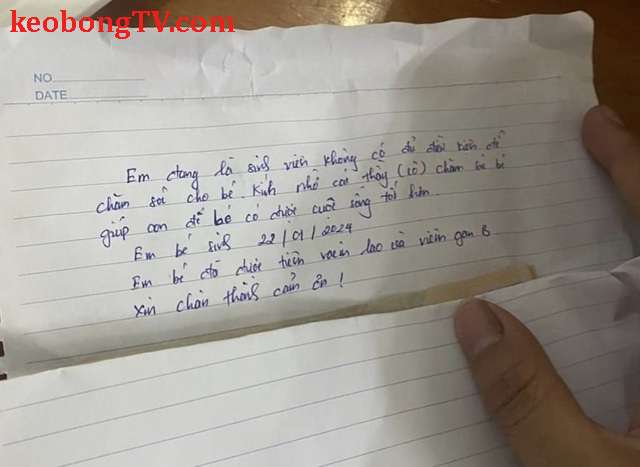 keobongTV.com
NO
DATE
Em đang là sinh viên không có đủ điều kiện để
chăm sóc cho bé. Kính nhờ các thầy (cô) chăm bé
giúp con để bé có được cuộc sống tốt hơn
Em bé sinh 22/01/2024
Em bé đã được tiêm vacin lao và viêm gan B
Xin chân thành cảm ơn!